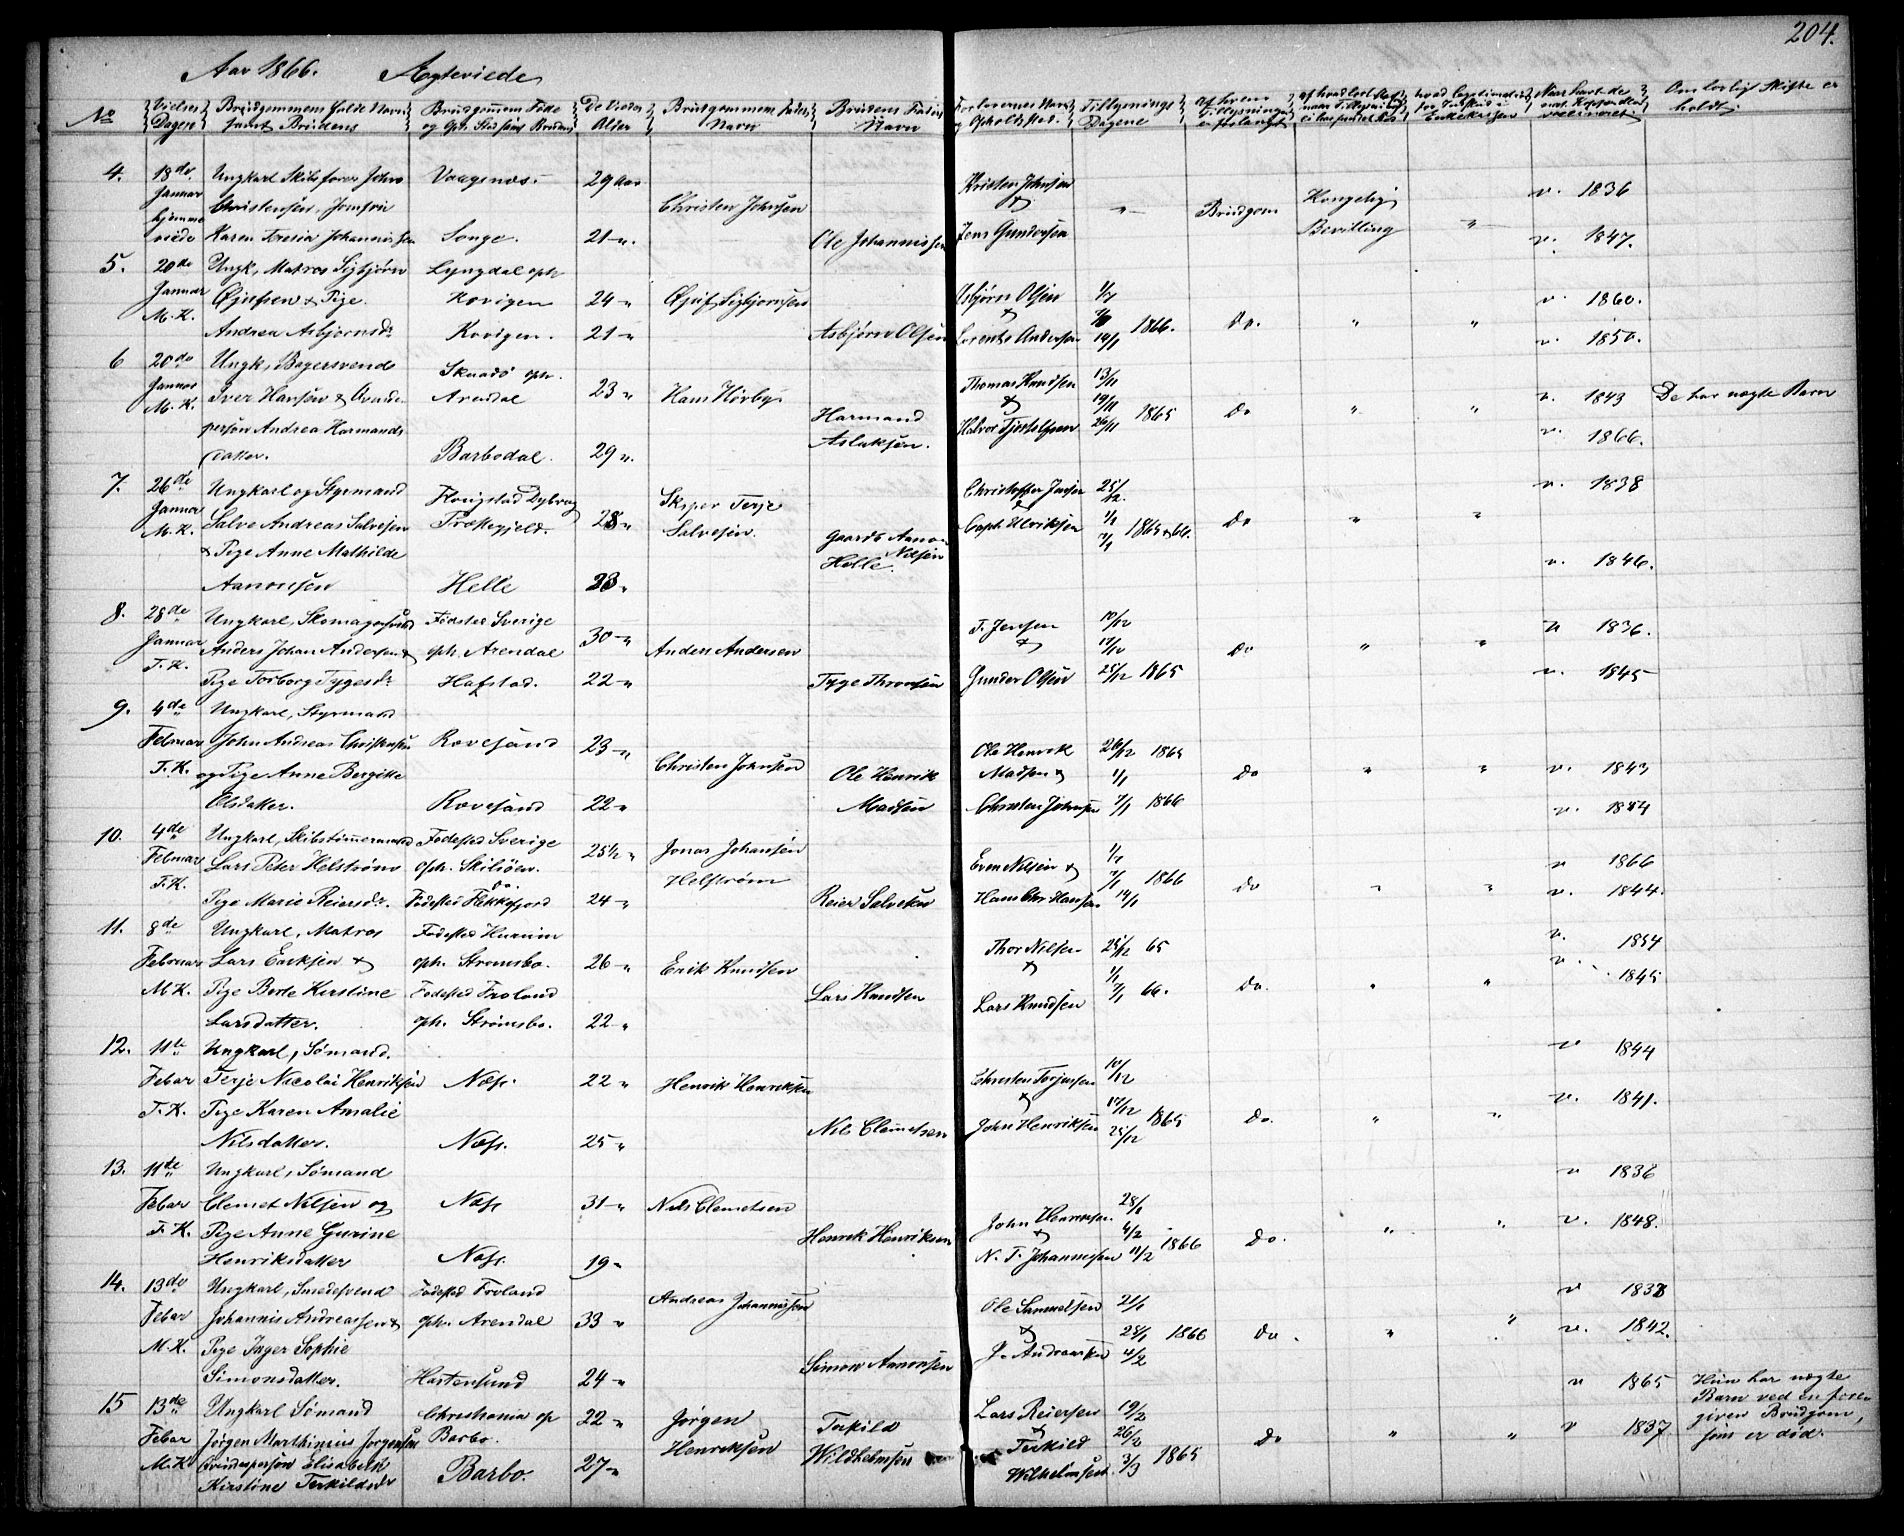 204.
Aar 1866. Ægteviede
No Vielses Dagene Brudgommens fulde Navn samt Brudens Brudgommens Føde og Oph. Sted samt Brudens De Viedes Alder Brudgommens Faders Navn Brudens Faders Navn Forlovernes Navn og Opholdsted Tillysnings Dagene af hvem Tillysningen er forlangt
4. 18de Ungkarl Skibsfører John Vaagsnæs. 29 Aar Kristen Johnsen v. 1836
Januar Christensen, Jomfru Christen Johnsen & " Brudgom Kongelig
hjemme Bevilling "
viede Karen Teresia Johannissen Songe. 21 " Ole Johannissen Jens Gundersen v. 1847.
5. 20de Ungk, Matros Sigbjørn Lyngdal oph
Januar Øjufsen & Pige Kovigen 24 " Øjuf Sigbjørnsen Asbjørn Olsen 1/1 v. 1860.
M. K. & 7/1 1866. Do. " "
Andrea Asbjørnsdr Kovigen. 21 " Asbjørn Olsen Lorents Andersen 14/1 v. 1850.
6 20de Ungk, Bagersvend Skaadø oph.
Januar Iver Hansen & Qvinde Arendal 23 " Hans Hørbye Thomas Knudsen 13/11 v. 1843 De har nægte Barn
M. K. person Andrea Harmands Harmand & 19/11 1865 Do " "
datter. Barbodal. 29 ". Aslaksen. Halvor Tjostolfsen 26/11 v. 1866.
7. 26de Ungkarl og Styrmand Flougstad Dybvaag Skiper Terje Christopher Jensen 25/12 v. 1838
Januar Salve Andreas Salvesen Trækegjeld. 28 " Salvesen. & Capt. Ulriksen 1/1 1865 & 66. Do " "
M. K. & Pige Anne Mathilde Gaardb. Aanon Nilsen 7/1
Aanonsen Helle 23 " Helle. v. 1846.
8. 28de Ungkarl, Skomagersvend Fødsted Sverige 30 " T. Jensen 10/12 v 1836.
Januar Anders Johan Andersen & oph. Arendal Anders Andersen & 17/12 Do " "
T. K. Pige Torborg Tygesdr Hafstad. 22 " Tyge Thronsen Gunder Olsen 25/12 1865 v. 1845
9. 4de Ungkarl, Styrmand
Februar John Andreas Christensen Rovesand 23 " Christen Johnsen Ole Henrik 26/12 1865
T. K. og Pige Anne Bergitte Ole Henrik Madsen & 1/1 Do " " v. 1843
Olsdatter. Rovesand 22 " Madsen Christen Johnsen 7/1 1866 v. 1844
10. 4de Ungkarl, Skibstømmermand Fødested Sverige 25½ " Jonas Johansen
Februar Lars Peter Helstrøm oph. Skilsöen. Helstrøm Even Nilsen & 1/1 v 1866
T. K. Do. 7/1 1866 Do " "
Pige Marie Reiersdr. Fødested Flekkefjord 24 " Reier Salvesen Hans Chr. Hansen 14/1 v. 1844.
11. 8de Ungkarl, Matros Fødested Hurum Thor Nilsen 25/12 65 v. 1854
Februar Lars Eriksen & oph. Strømsbo. 26 " Erik Knudsen & 1/1 v. 1845
M. K. Pige Berte Kirstine Fødested Froland Lars Knudsen 7/1 66. Do. " "
Larsdatter. oph. Strømsbo. 22 " Lars Knudsen
12. 11te Ungkarl, Sømand. v 1844
Febar Terje Nicolai Henriksen Næss. 22 " Henrik Henriksen Christen Terjesen 10/12
T. K. Pige Karen Amalie & 17/12 1865 Do. " " v. 1841.
Nilsdatter. Næss. 25 " Nils Clemetsen John Henriksen 25/12
13. 11te Ungkarl, Sømand v 1836
Febar Clemet Nilsen og Næss 31 " Nils Clemetsen John Henriksen 28/1
T. K. Pige Anne Gurine Henrik Henriksen & 4/2 1866 Do. " " v. 1848.
Henriksdatter Næss. 19 " N. T. Johannesen 11/2
14. 13de Ungkarl, Smedesvend Fødested Froland Andreas Johannissen v 1838
Febar Johannis Andreassen & oph. Arendal 33 " Ole Samuelsen 21/1
M. K. Pige Inger Sophie & 28/1 1866 Do. " " v. 1842.
Simonsdatter. Hastensund 24 " Simon Aanonsen J. Andreassen 4/2
15 13de Ungkarl Sømand Christiania op 22 " Jørgen Terkild Lars Reiersen 19/2 v 1865 Hun har nægte
Febar Jørgen Marthinius Jørgensen Barbo. Henriksen & 26/2 Do " " v 1837. Barn ved en foregiven Brudgom,
M. K. Qvindesperson Elisabeth Barbo. 27 " Wildhelmsen Terkild 3/3 1865 som er død.
Kirstine Terkildsdr Wilhelmsen.